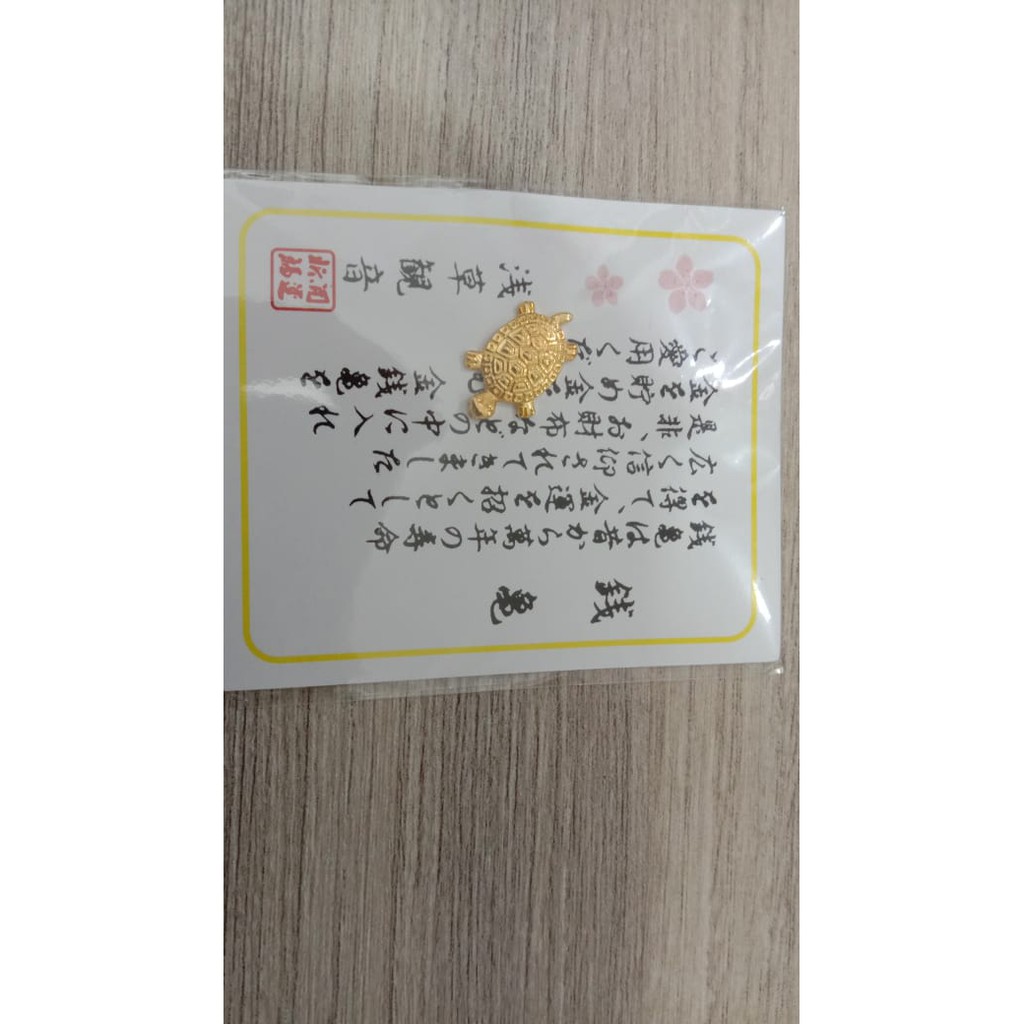 銭亀
銭亀は昔から萬年の寿命
を得て、金運を招くとして
広く信仰されてきました
是非、お財布などの中に入れ
金を貯め金 金銭亀を
ご愛用くだ
浅草観音
開運
招福